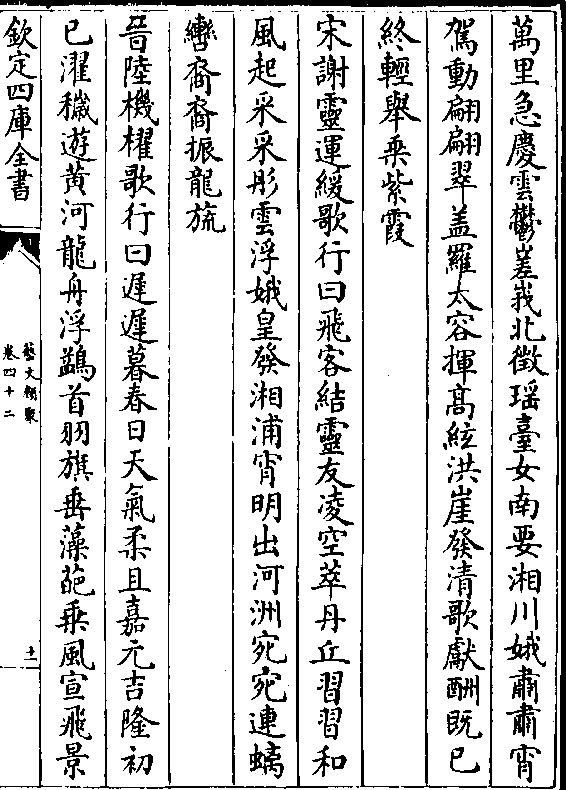 萬里急慶雲鬱嵳峩北徴瑶臺女南要湘川娥肅肅宵
駕動翩翩翠盖羅太容揮髙絃洪崖發清歌獻酬既已
終輕舉乘紫霞
宋謝靈運緩歌行曰飛客結靈友凌空萃丹丘習習和
風起采采彤雲浮娥皇發湘浦宵明出河洲宛宛連螭
轡裔裔振龍旒
晉陸機櫂歌行曰遲遲暮春日天氣柔且嘉元吉隆初
已濯穢遊黄河龍舟浮鷁首羽旗垂藻葩乘風宣飛景
欽定四庫全書
藝文類聚
卷四十二
十一